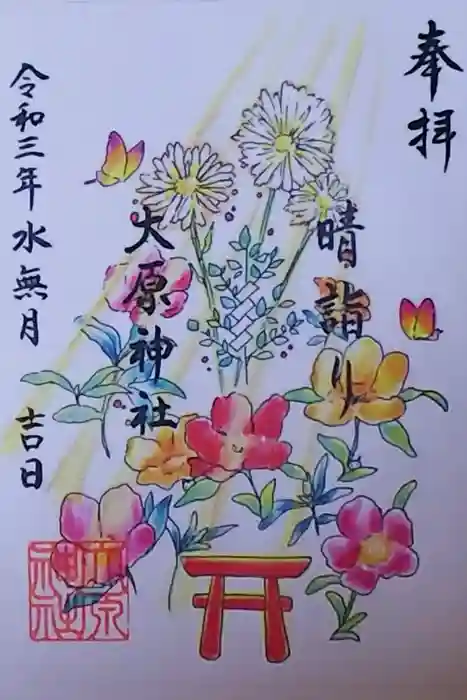 奉拝
晴詣り
大原神社
令和三年水無月 吉日